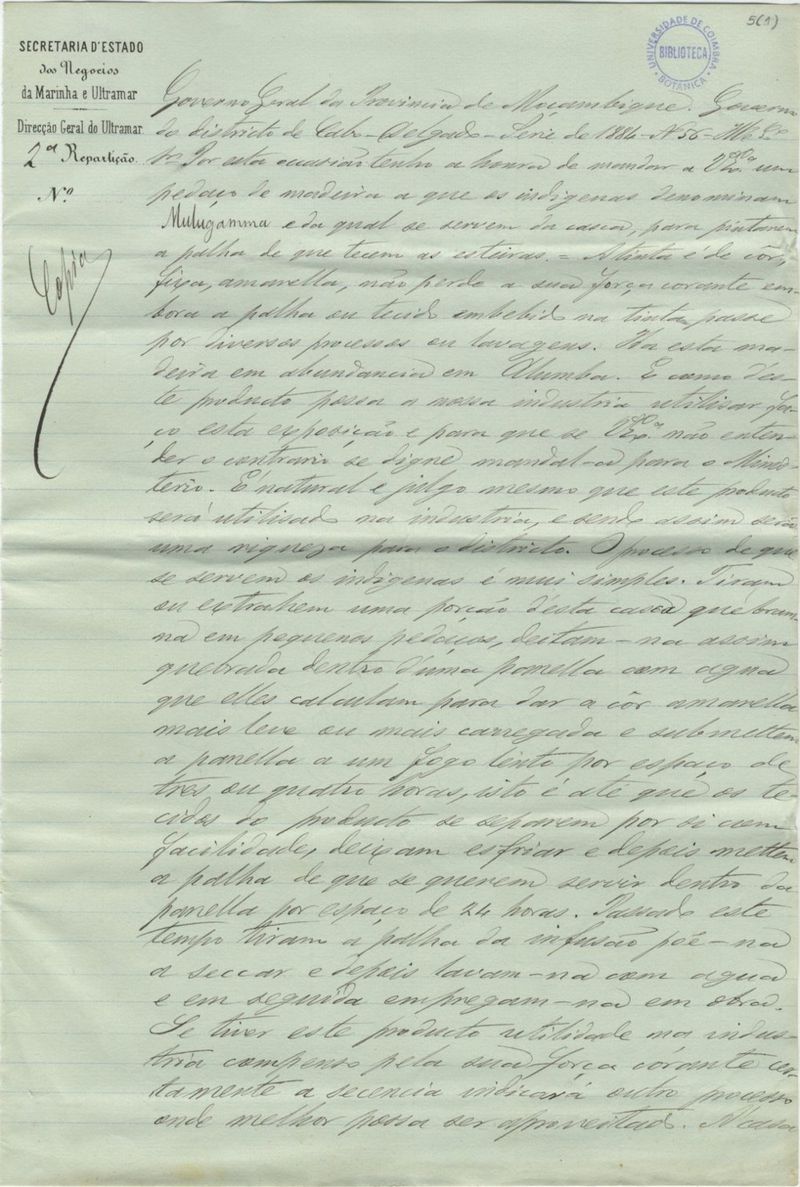 5(1)
UNIVERSIDADE DE COIMBRA
BIBLIOTECA
BOTANICA
SECRETARIA D'ESTADO
dos Negocios
da Marinha e Ultramar
Direcção Geral do Ultramar
2ª Repartição.
N.º
Copia
Governo Geral da Provincia de Moçambique. Governo
do districto de Cabo-Delgado - Serie de 1884 - N 56 - Illº Exº
Sr. Por esta occasião tenho a honra de mandar a VExª um
pedaço de madeira a que os indigenas denominam
Mulugamma e da qual se servem da casca, para pintarem
a palha de que tecem as esteiras. = A tinta é de côr,
fixa, amarella, não perde a sua força corante em-
bora a palha ou tecido embebido na tinta, passe
por diversos processos ou lavagens. Ha esta ma-
deira em abundancia em Alumba. E como des-
te producto possa a nossa industria utilisar fa-
ço esta exposição e para que se VExª não enten-
der o contrario se digne mandal-a para o Minis-
terio. É natural e julgo mesmo que este producto
será utilisado na industria, e sendo assim seria
uma riqueza para o districto. O processo de que
se servem os indigenas é mui simples. Tiram
ou extrahem uma porção d'esta casca quebram-
na em pequenos pedaços, deitam-na assim
quebrada dentro d'uma panella com agua
que elles calculam para dar a côr amarella
mais leve ou mais carregada e submettem
a panella a um fogo lento por espaço de
tres ou quatro horas, isto é até que os te-
cidos do producto se separem por si com
facilidade, deixam esfriar e depois mettem
a palha de que se querem servir dentro da
panella por espaço de 24 horas. Passado este
tempo tiram a palha da infusão põe-na
a seccar e depois lavam-na com agua
e em seguida empregam-na em obra.
Se tiver este producto utilidade na indus-
tria compenso pela sua força córante cer-
tamente a secencia indicará outro processo
onde melhor possa ser aproveitado. A casca